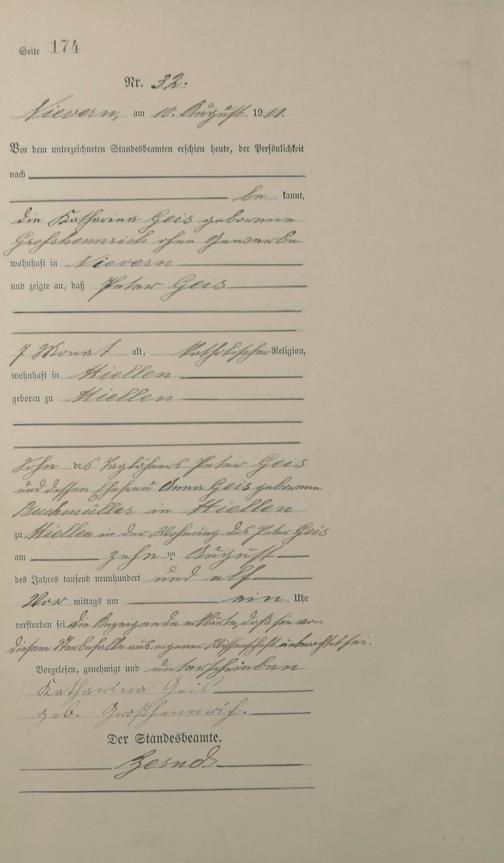 Seite 174
Nr. 32.
Nievern, am 10. August 1911.
Vor dem unterzeichneten Standesbeamten erschien heute, der Persönlichkeit
nach
be kannt,
die Katharina Geis geborene
Großhennrich ohne Gewerbe
wohnhaft in Nievern
und zeigte an, daß Peter Geis
7 Monat alt, katholischer Religion,
wohnhaft in Miellen
geboren zu Miellen
Sohn des Taglöhners Peter Geis
und dessen Ehefrau Anna Geis geborene
Buchmüller in Miellen
zu Miellen in der Wohnung des Peter Geis
am zehnten August
des Jahres tausend neunhundert und elf
Vor mittags um ein Uhr
verstorben sei. Die Anzeigende erklärte, daß sie von
diesem Sterbefalle aus eigener Wissenschaft unterrichtet sei.
Vorgelesen, genehmigt und unterschrieben
Katharina Geis
geb. Großhennrich.
Der Standesbeamte.